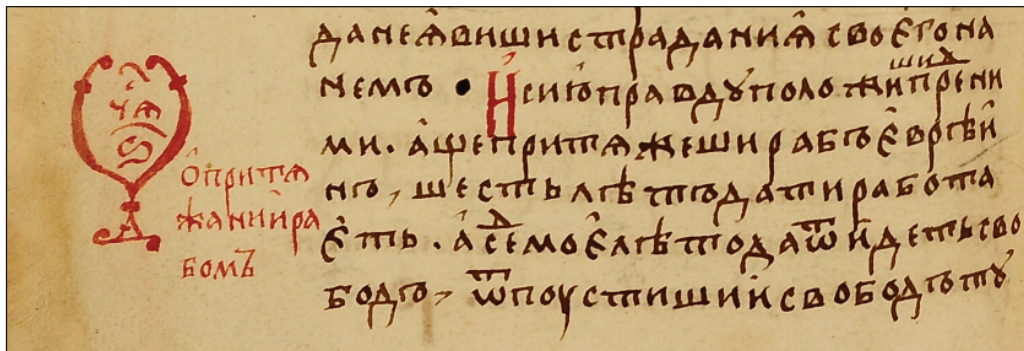 О҆притѧ
жаниира
бомъ
данеꙗ҆вишистраданиꙗ҆своє҆гона
немъ • И҆сиюправдꙋположишипредни
ми. а҆щепритѧжеширабъє҆врѣи҆
нъ, шестьлѣтъдатиработа
є҆ть. а҆седмоє҆лѣтодаѿидетьсво
бодъ, ѿпоустишиисвободътꙋ